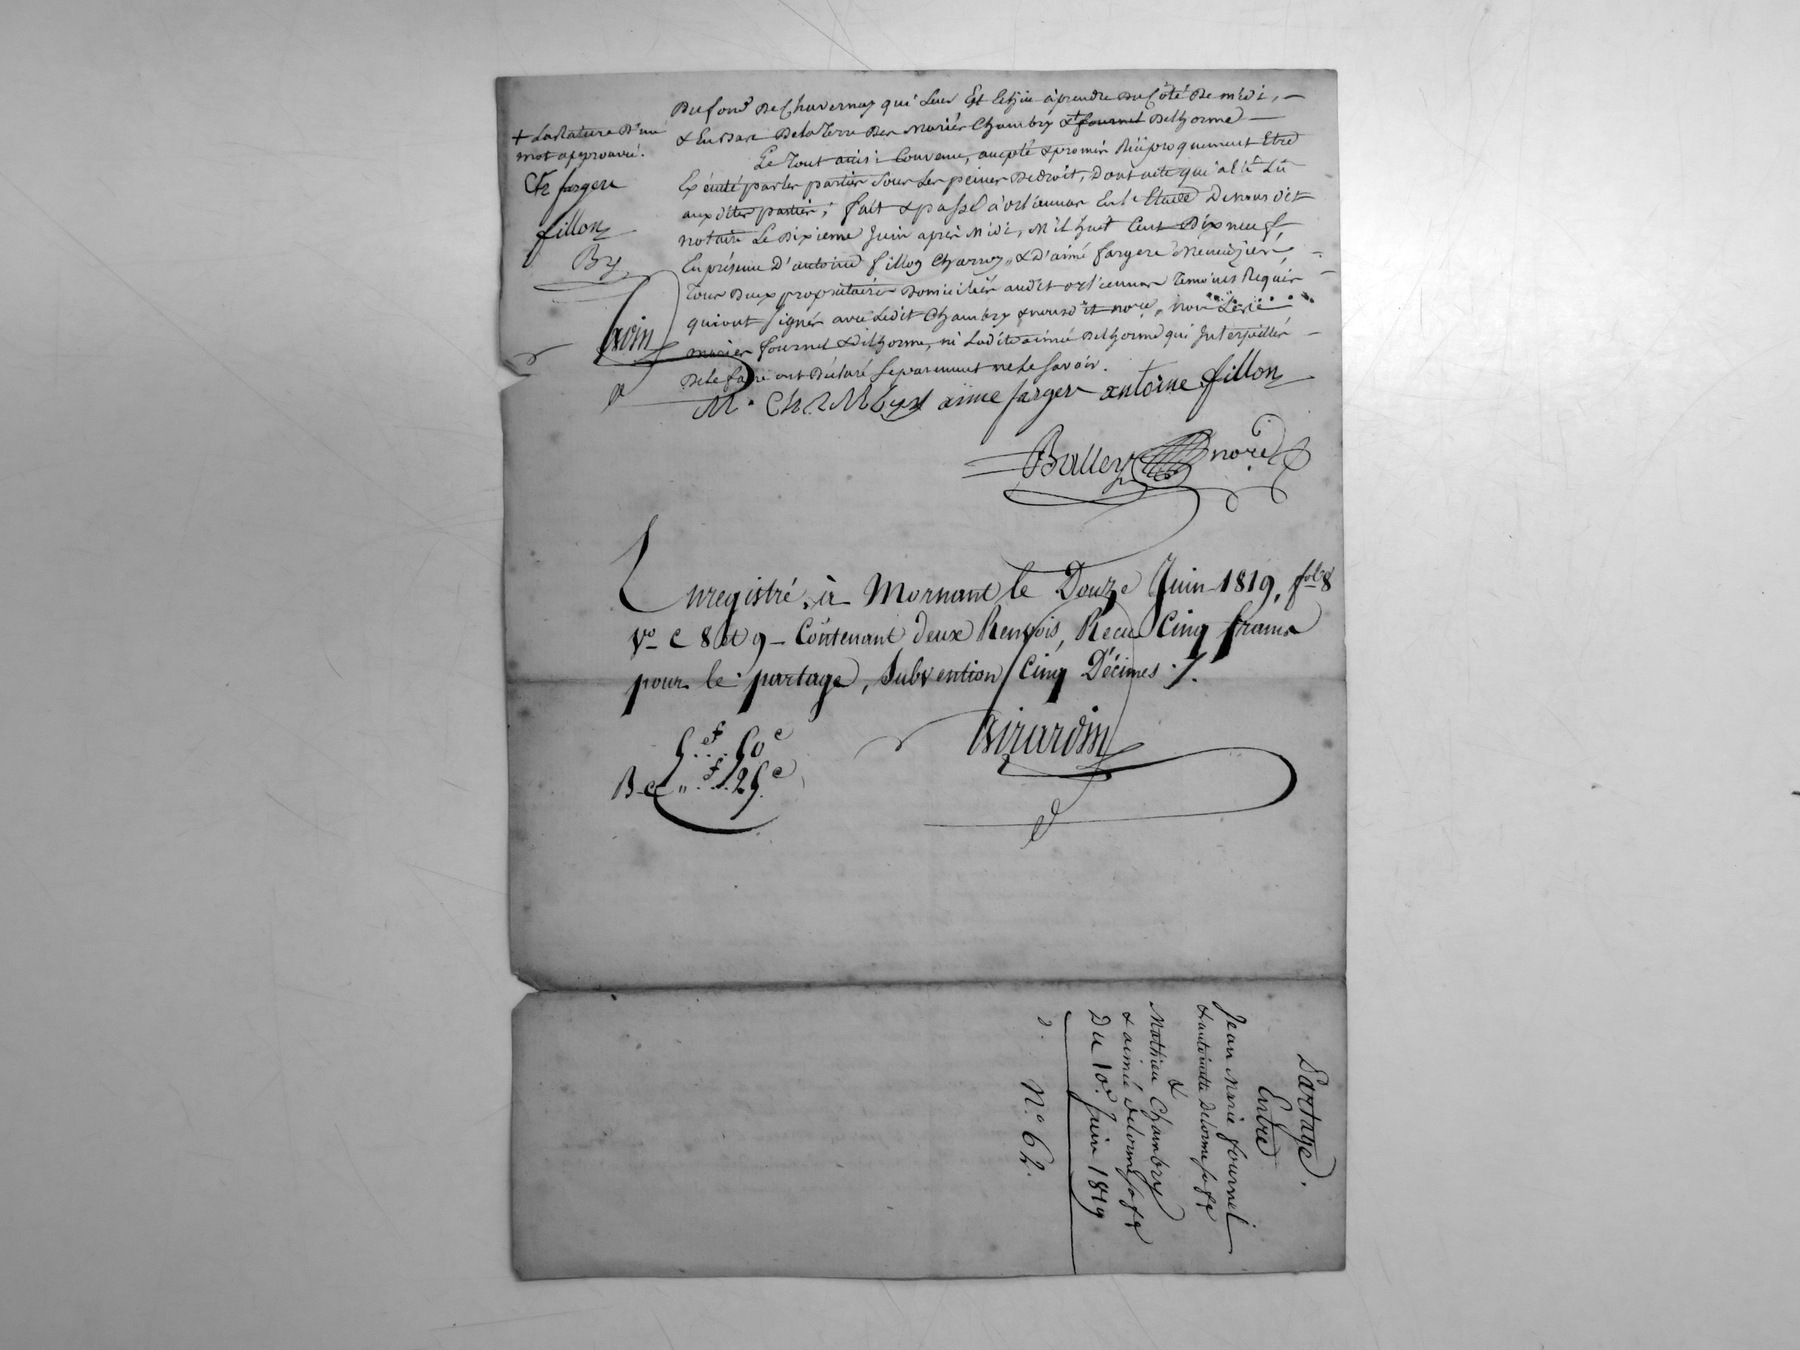 Du fond de Chavernay qui leur est échu à prendre du Côté de midi, —
& En Bare de la terre des Mariés Chambry & fournel Delhorme —
Le tout ainsi Convenu, accepté & promis Réciproquement Etre
Exécuté par les parties sous les peines de droit, Dont acte qui a été Lu
aux dites parties; fait & passé à orliennas En l'Etude De nous dit
notaire Le Dixieme Juin après Midi, Mil huit Cent Dix neuf,
En présence D'antoine fillon Charroy & D'aimé fargere
tous deux propriétaires Domiciliés audit orliennas temoins Requis
qui ont signé avec Ledit Chambry & nous dit nore, non Les
mariés fournel & Delhorme, ni Ladite aimée Delhorme qui Interpellés
De le faire ont Déclaré séparément ne le savoir.
M. Chambry aime farger antoine fillon
Balley nore
+ La Rature D'un
mot approuvé.
Ch farger
fillon
By
Enregistré à Mornant le Douze Juin 1819, fol 8
Vo C 8 et 9 – Contenant deux Renvois, Recu Cinq francs
pour le partage, Subvention Cinq Décimes ./.
Girardin
5f .. 50c
B.e " f .. 25c
Partage.
Entre
Jean Marie fournel
& antoinette Delorme sa fe
&
Mathieu Chambry
& aimée delorme sa fe
Du 10e Juin 1819
N.o 62.